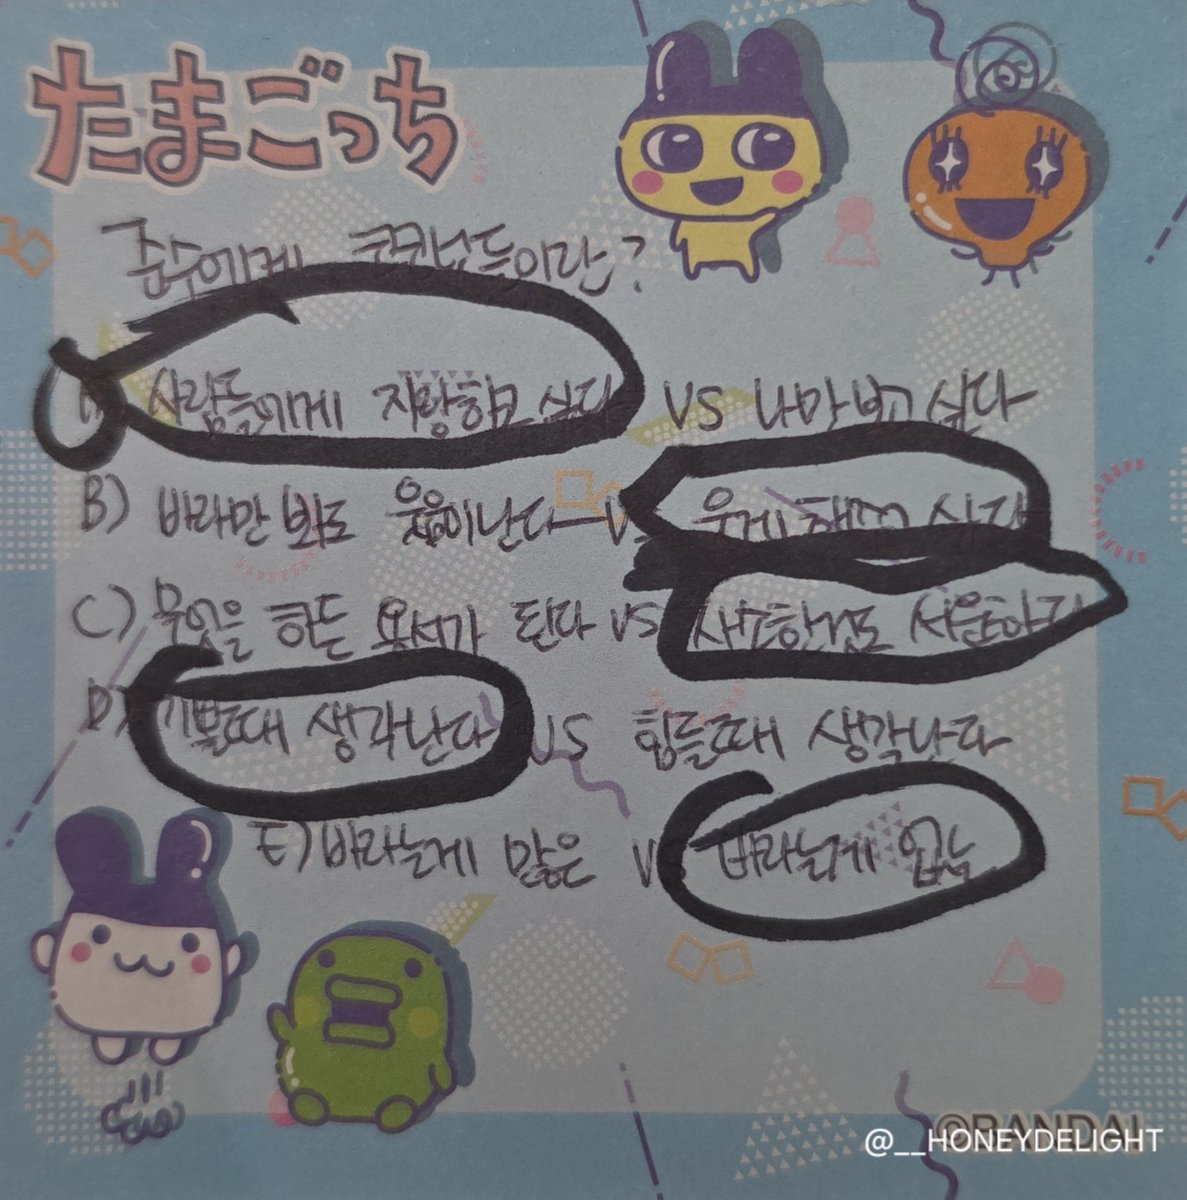 たまごっち
준수에게 코코넛들이란?
사람들에게 자랑하고 싶다 VS 나만 보고 싶다
B) 바라만 봐도 웃음이 난다 VS 웃게 해주고 싶다
C) 무엇을 하든 용서가 된다 VS 사소한것도 서운하다
D) 기쁠때 생각난다 VS 힘들때 생각난다
E) 바라는게 많은 VS 바라는게 없는
©BANDAI
@__HONEYDELIGHT